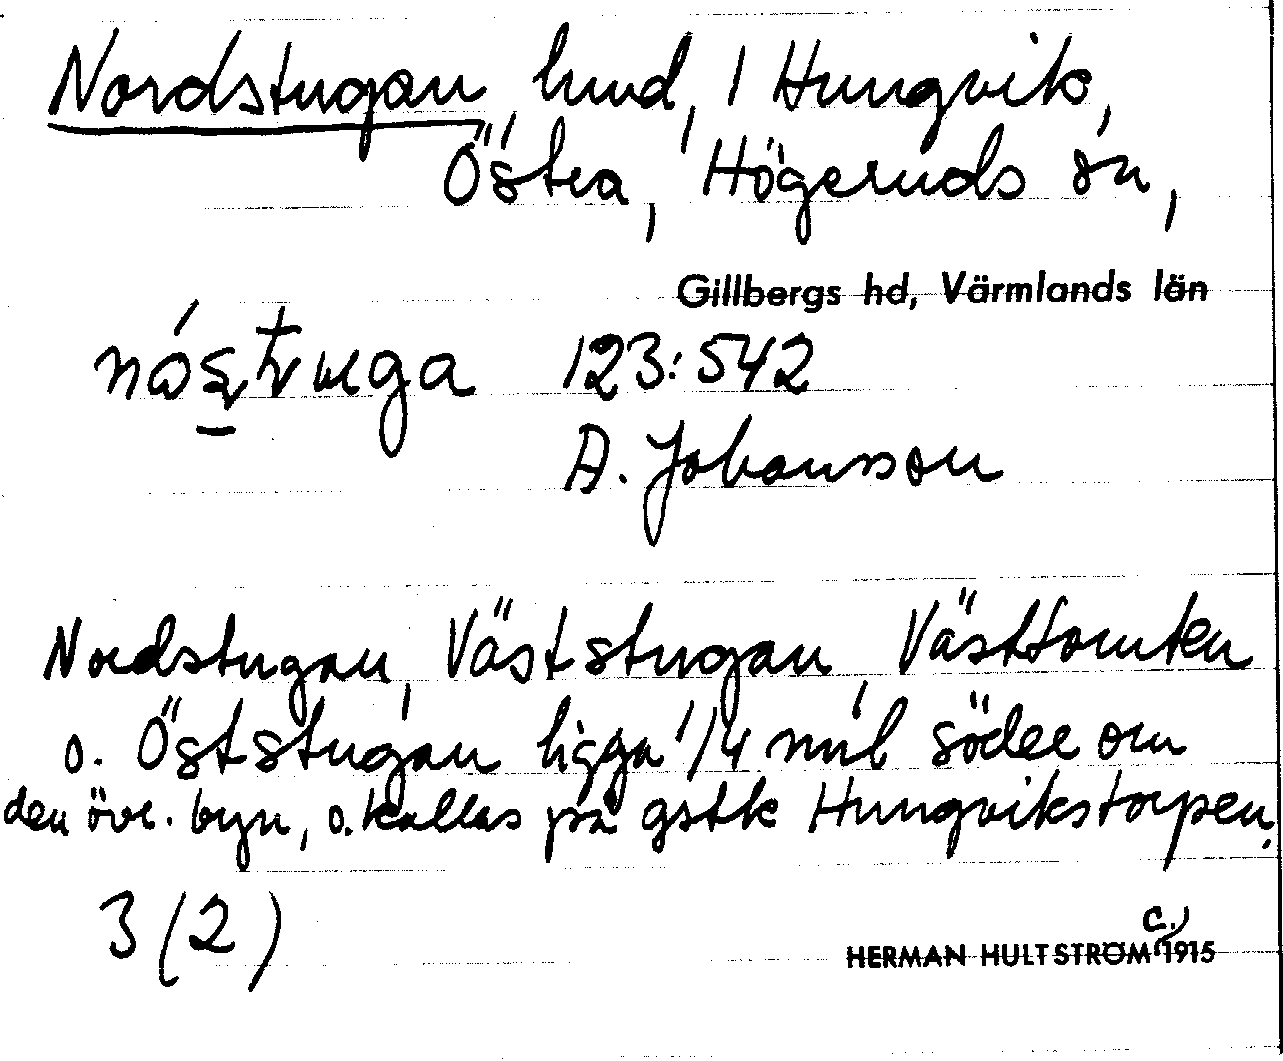 Nordstugan, hmd, 1 Hungvik,
Östra, Högeruds sn,
Gillbergs hd, Värmlands län
123:542
A. Johansson
Nordstugan, Väststugan, Västtomten
o. Öststugan ligga 1/4 mil söder om
den övr. byn, o. kallas på gstk Hungvikstorpen.
3 (2)
HERMAN HULTSTRÖM (c. 1915